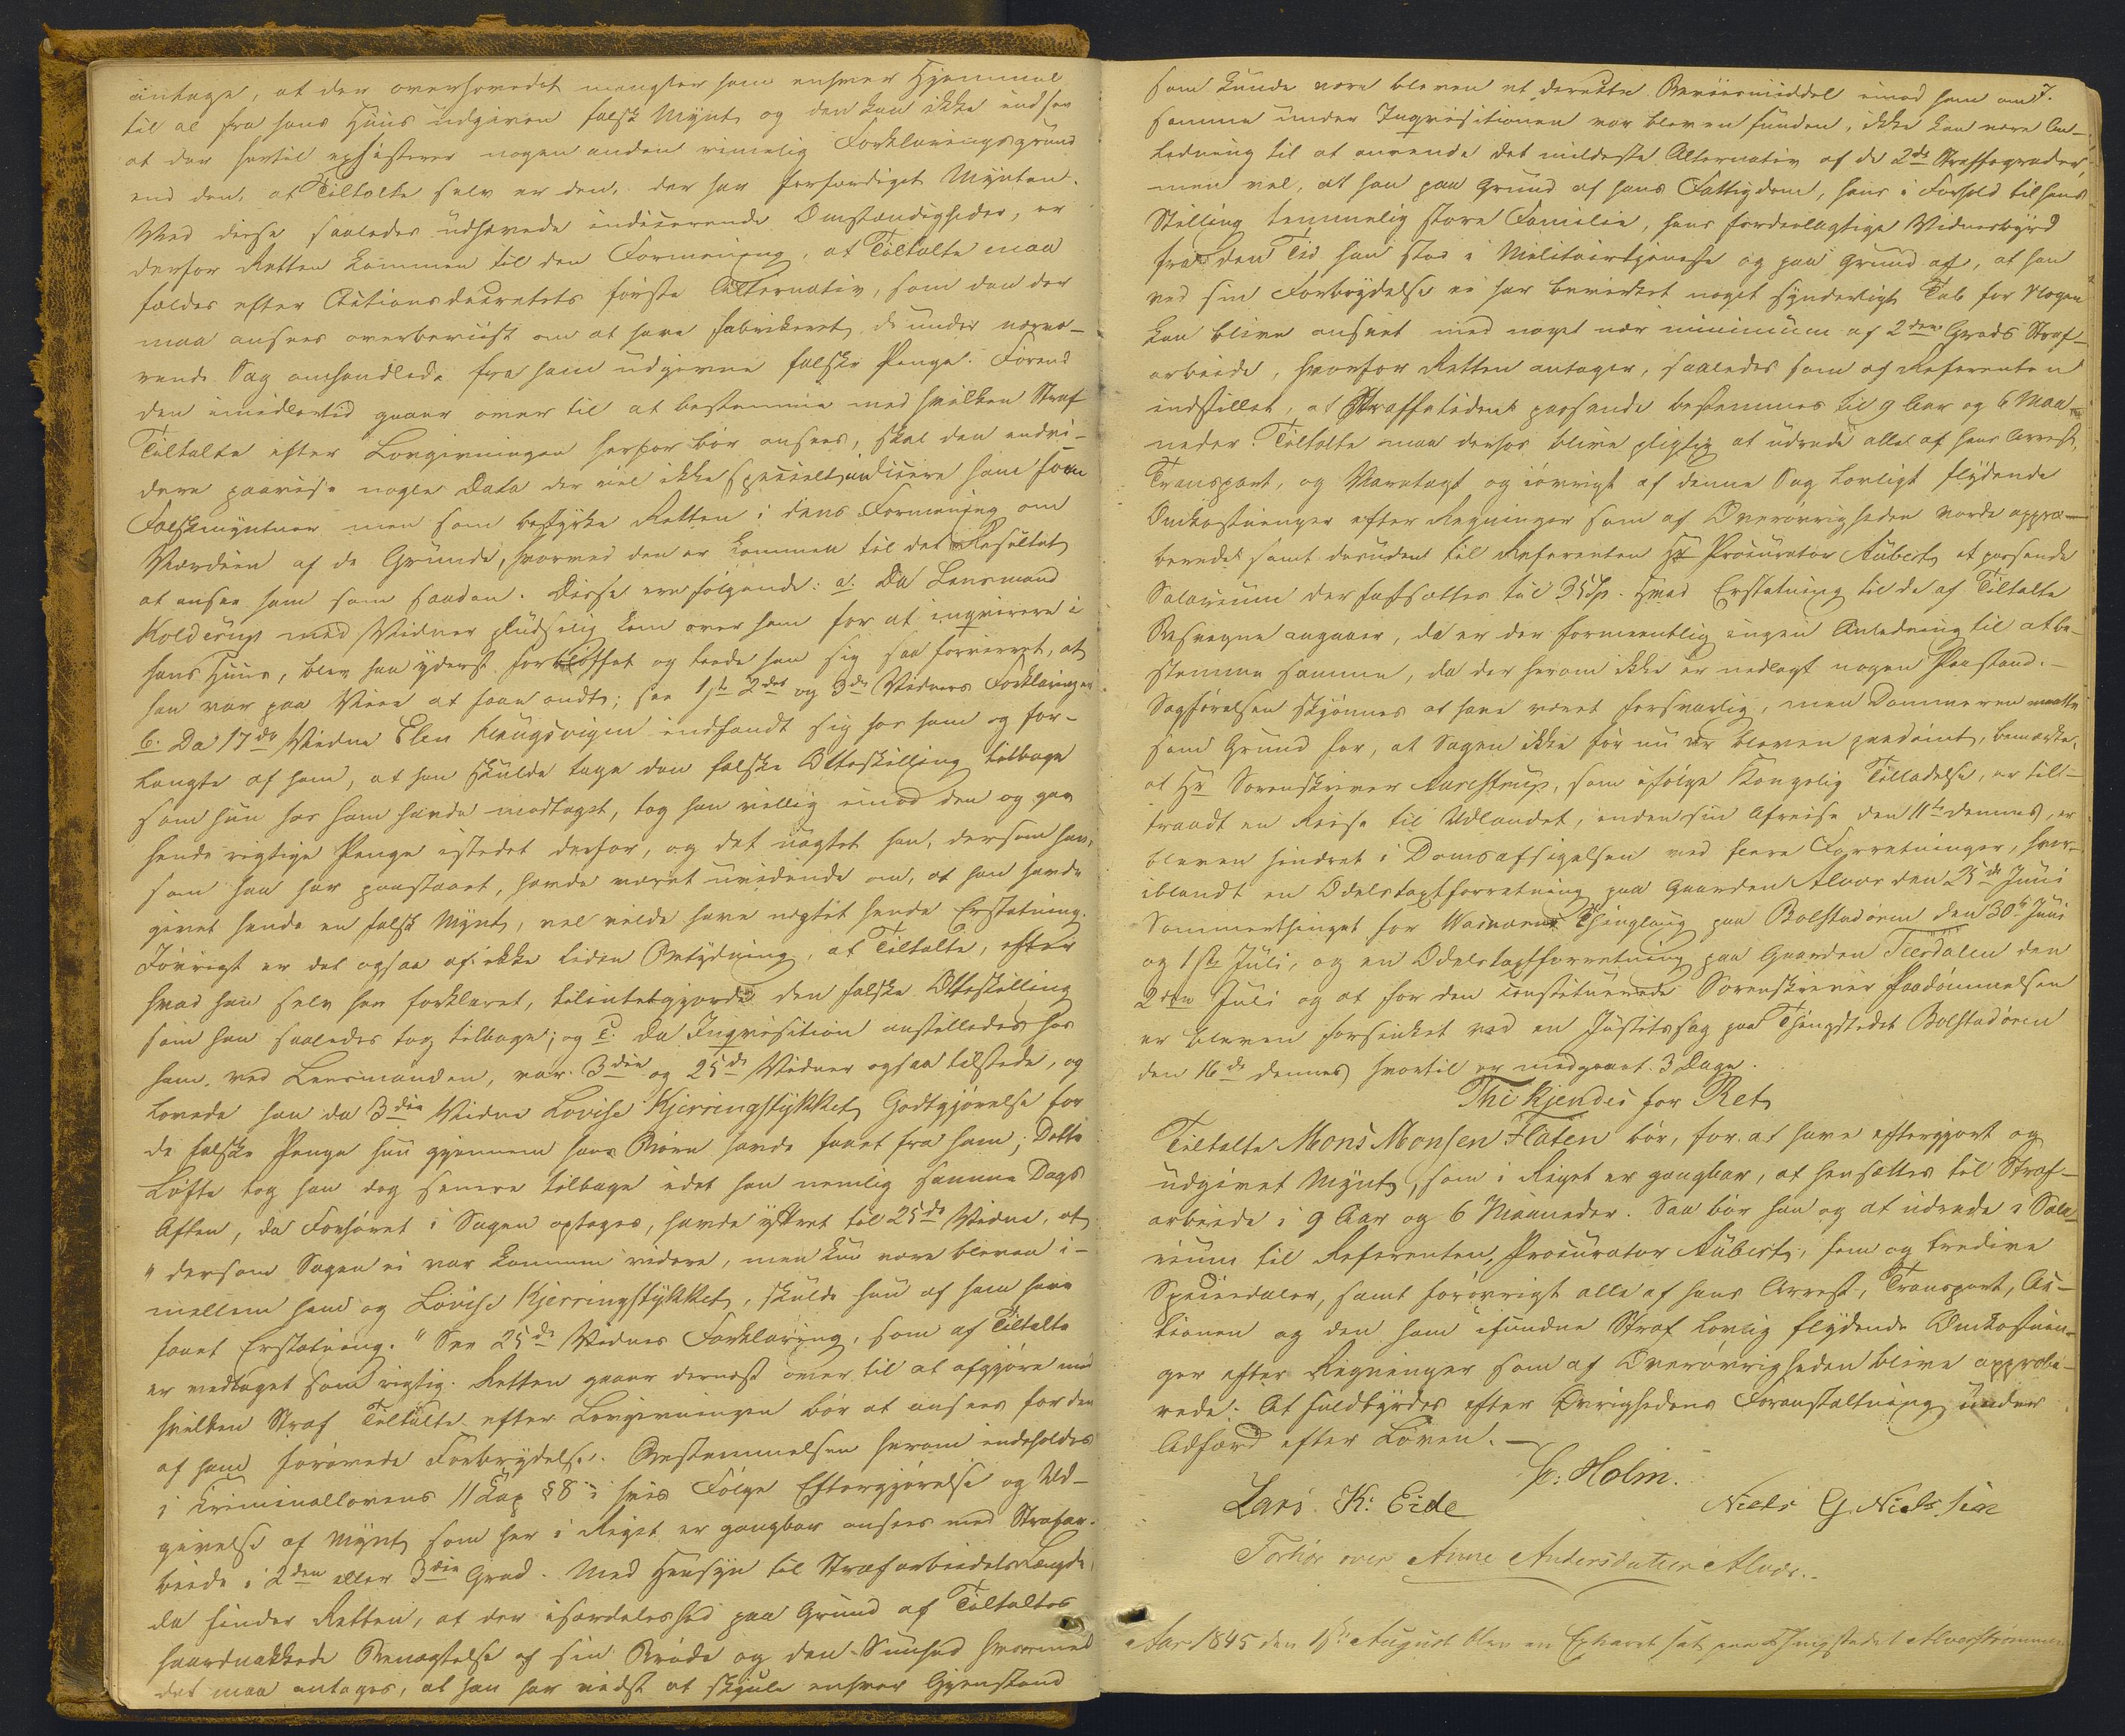 antage, at der overhovedet mangler ham enhver Hjemmel
til al fra hans Huus udgiven falsk Mynt og den kan ikke indsee
at der hertil exsisterer nogen anden rimelig Forklaringsgrund
end den, at Tiltalte selv er den, der har forfærdiget Mynten.
Ved disse saaledes udhævede indicerende Omstændigheder, er
derfor Retten kommen til den Formening, at Tiltalte maa
fældes efter Actionsdecretets første Alternativ, som den der
maa ansees overbeviist om at have fabrikeret de under nærvæ-
rende Sag omhandlede fra ham udgivne falske Penge. Førend
den imidlertid gaaer over til at bestemme med hvilken Straf
Tiltalte efter Lovgivningen herfor bør ansees, skal den endvi-
dere paavise nogle Data der vel ikke specielt indicere ham som
Falskmyntner men som bestyrke Retten i dens Formening om
Værdien af de Grunde, hvorved den er kommen til det Resultat
at ansee ham som saadan. Disse ere følgende: a. Da Lensmand
Kolderup med Vidner pludselig kom over ham for at inqvirere i
hans Huus, blev han yderst forbløffet og teede han sig saa forvirret, at
han var paa Veie at faae ondt; see 1ste 2det og 3die Vidners Forklaringer
b. Da 17de Vidne Elen Haugsvigen indfandt sig hos ham og for-
langte af ham, at han skulde tage den falske Otteskilling tilbage
som hun hos ham havde modtaget, tog han villig imod den og gav
hende rigtige Penge istedet derfor, og det uagtet han, dersom han,
som han har paastaaet, havde været uvidende om, at han havde
givet hende en falsk Mynt, vel vilde have nægtet hende Erstatning.
Iøvrigt er det ogsaa af ikke liden Betydning, at Tiltalte, efter
hvad han selv har forklaret, tilintetgjorde den falske Otteskilling
som han saaledes tog tilbage; og c. Da Inqvisition anstilledes hos
ham ved Lensmanden, var 3die og 25de Vidner ogsaa tilstede, og
lovede han da 3die Vidne Lovise Kjerringstykket Godtgjørelse for
de falske Penge hun gjennem hans Børn havde faaet fra ham; Dette
Løfte tog han dog senere tilbage idet han nemlig samme Dags
Aften, da Forhøret i Sagen optoges, havde yttret til 25de Vidne, at
"dersom Sagen ei var kommen videre, men kun være bleven i-
mellem ham og Lovise Kjerringstykket, skulde hun af ham have
faaet Erstatning." See 25de Vidnes Forklaring, som af Tiltalte
er vedtaget som rigtig. Retten gaaer dernæst over til at afgjøre med
hvilken Straf Tiltalte efter Lovgivningen bør at ansees for den
af ham forøvede Forbrydelse. Bestemmelsen herom indeholdes
i Kriminallovens 11 Cap § 8 i hvis Følge Eftergjørelse og Ud-
givelse af Mynt som her i Riget er gangbar ansees med Strafar-
beide i 2den eller 3die Grad. Med Hensyn til Strafarbeidets Længde,
da finder Retten, at der isærdeleshed paa Grund af Tiltaltes
haardnakkede Benægtelse af sin Brøde og den Snuhed hvormed
det maa antages, at han har vidst at skjule enhver Gjenstand
som kunde være bleven et directe Beviismiddel imod ham om 7.
samme under Inqvisitionen var bleven funden, ikke kan være An-
ledning til at anvende det mildeste Alternativ af de 2de Straffegrader,
men vel, at han paa Grund af hans Fattigdom, hans i Forhold til hans
Stilling temmelig store Familie, hans fordeelagtige Vidnesbyrd
fra den Tid han stod i Militairtjeneste og paa Grund af, at han
ved sin Forbrydelse ei har bevirket noget synderligt Tab for Nogen
kan blive anseet med noget nær minimum af 2den Grads Straf-
arbeide, hvorfor Retten antager, saaledes som af Referenten
indstillet, at Straffetiden passende bestemmes til 9 Aar og 6 Maa-
neder. Tiltalte maa derhos blive pligtig at udrede alle af hans Arrest,
Transport, og Varetægt og iøvrigt af denne Sag lovligt flydende
Omkostninger efter Regninger som af Overøvrigheden vorde appro-
berede samt desuden til Referenten Hr Procurator Aubert et passende
Salarium der fastsættes til 35 Sp. Hvad Erstatning til de af Tiltalte
Besvegne angaaer, da er der formeentlig ingen Anledning til at be-
stemme samme, da der herom ikke er nedlagt nogen Paastand.-
Sagførelsen skjønnes at have været forsvarlig, men Dommeren maatte
som Grund for, at Sagen ikke før nu er bleven paadømt, bemærke,
at Hr Sorenskriver Aarestrup, som ifølge Kongelig Tilladelse, er til-
traadt en Reise til Udlandet, inden sin Afreise den 11te dennes, er
bleven hindret i Domsafsigelsen ved flere Forretninger, hvor-
iblandt en Odelstaxtforretning paa Gaarden Alvær den 25de Juni
Sommerthinget for Thinglaug paa Bolstadøren den 30te Juni
og 1ste Juli, og en Odelstaxtforretning paa Gaarden Teesdalen den
2den Juli og at for den constituerede Sorenskriver Paadømmelsen
er bleven forsinket ved en Justitssag paa Thingstedet Bolstadøren
den 16de dennes hvortil er medgaaet 3 Dage.
Thi kjendes for Ret
Tiltalte Mons Monsen Flaten bør, for at have eftergjort og
udgivet Mynt, som i Riget er gangbar, at hensættes til Straf-
arbeide i 9 Aar og 6 Maaneder. Saa bør han og at udrede i Sala-
rium til Referenten, Procurator Aubert, fem og tredive
Speciedaler, samt forøvrigt alle af hans Arrest, Transport, Ac-
tionen og den ham ifundne Straf lovlig flydende Omkostnin-
ger efter Regninger som af Overøvrigheden blive approbe-
rede. At fuldbyrdes efter Øvrighedens Foranstaltning under
Adfærd efter Loven.-
C: Holm.
Lars K: Eide Niels G. Nielssen
Forhør over Anne Andersdatter Alvær.
Aar 1845 den 1ste August blev en Extraret sat paa Thingstedet Alverstrømmen